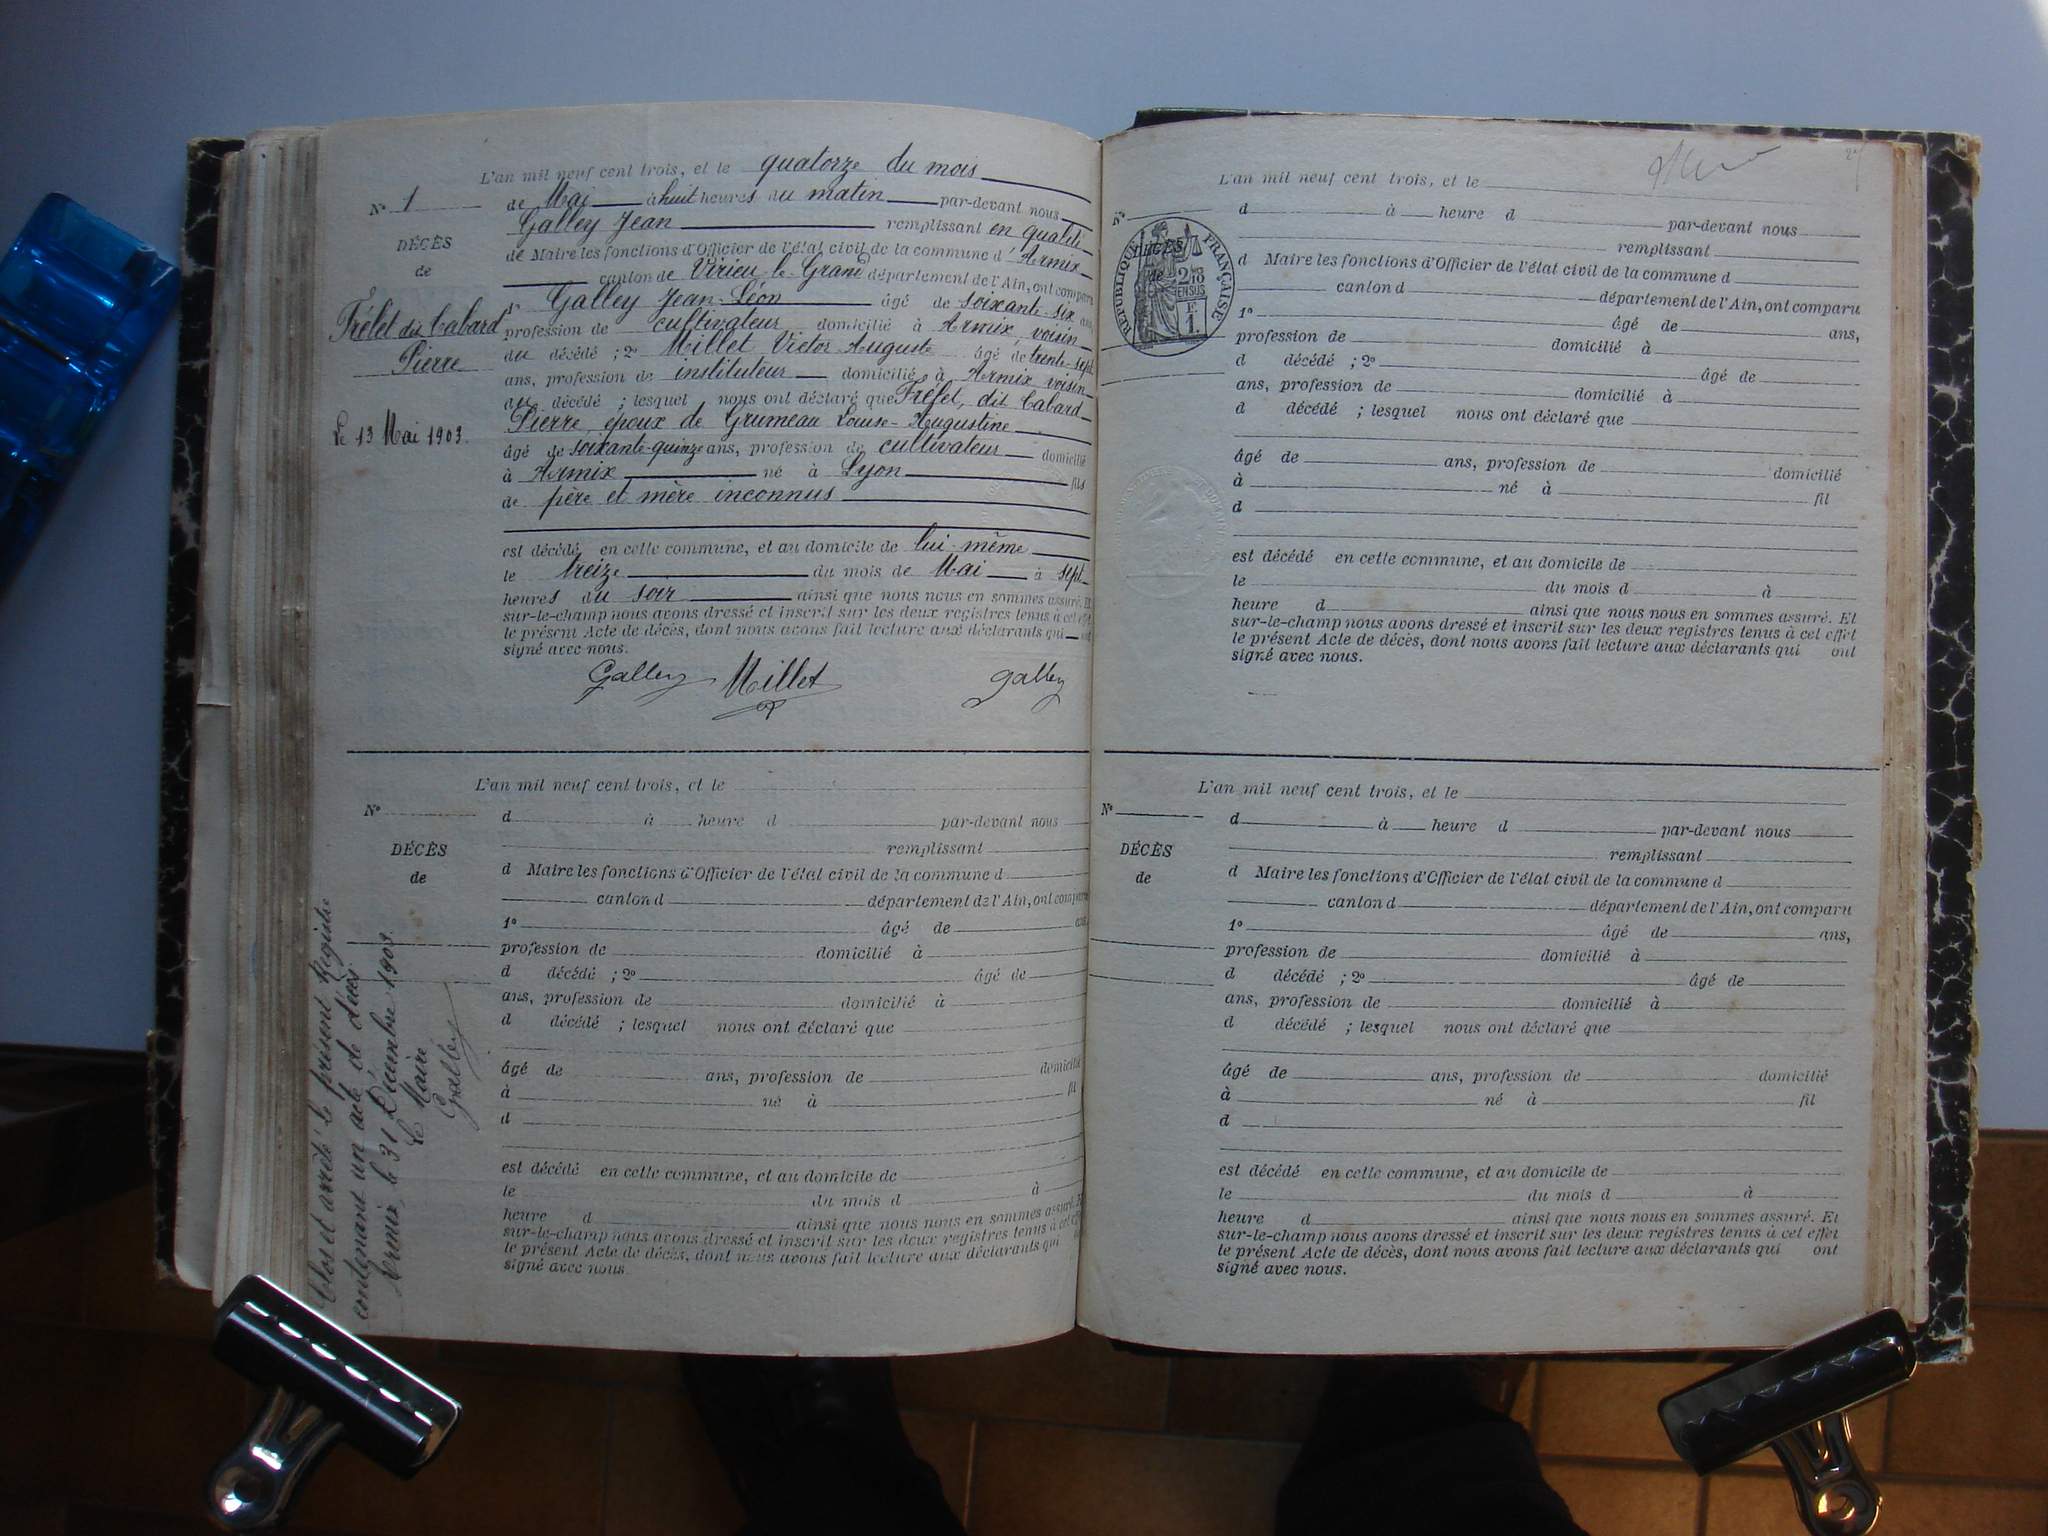 L'an mil neuf cent trois, et le quatorze du mois
N° 1
de Mai à huit heures du matin par-devant nous
Galley Jean remplissant en qualité
DÉCÈS
de Maire les fonctions d'Officier de l'état civil de la commune d'Armix
de
canton de Virieu-le-Grand département de l'Ain, ont comparu
1° Galley Jean-Léon âgé de soixante-six ans,
Fréfet dit Cabard
Pierre
profession de cultivateur domicilié à Armix, voisin
du décédé ; 2° Millet Victor Auguste âgé de trente-sept
ans, profession de instituteur domicilié à Armix voisin
au décédé ; lesquel nous ont déclaré que Fréfet, dit Cabard
Le 13 Mai 1903.
Pierre, époux de Grumeau Louise-Augustine
âgé de soixante-quinze ans, profession de cultivateur domicilié
à Armix né à Lyon fils
de père et mère inconnus
est décédé en cette commune, et au domicile de lui-même
le treize du mois de Mai à sept
heures du soir ainsi que nous nous en sommes assuré. Et
sur-le-champ nous avons dressé et inscrit sur les deux registres tenus à cet effet
le présent Acte de décès, dont nous avons fait lecture aux déclarants qui ont
signé avec nous.
Galley Millet Galley
L'an mil neuf cent trois, et le
N°
d à heure d par-devant nous
remplissant
DÉCÈS
de
d Maire les fonctions d'Officier de l'état civil de la commune d
canton d département de l'Ain, ont comparu
1° âgé de ans
profession de domicilié à
d décédé ; 2° âgé de
ans, profession de domicilié à
d décédé ; lesquel nous ont déclaré que
âgé de ans, profession de domicilié
à né à fil
d
est décédé en cette commune, et au domicile de
le du mois d à
heure d ainsi que nous nous en sommes assuré. Et
sur-le-champ nous avons dressé et inscrit sur les deux registres tenus à cet effet
le présent Acte de décès, dont nous avons fait lecture aux déclarants qui
signé avec nous.
Clos et arrêté le présent Registre
contenant un acte de décès.
Armix, le 31 Décembre 1903.
Le Maire
Galley
L'an mil neuf cent trois, et le
N°
d à heure d par-devant nous
remplissant
DÉCÈS
de
RÉPUBLIQUE FRANÇAISE
2/10 EN SUS
F.
1.
d Maire les fonctions d'Officier de l'état civil de la commune d
canton d département de l'Ain, ont comparu
1° âgé de ans,
profession de domicilié à
d décédé ; 2° âgé de
ans, profession de domicilié à
d décédé ; lesquel nous ont déclaré que
âgé de ans, profession de domicilié
à né à fil
d
est décédé en cette commune, et au domicile de
le du mois d à
heure d ainsi que nous nous en sommes assuré. Et
sur-le-champ nous avons dressé et inscrit sur les deux registres tenus à cet effet
le présent Acte de décès, dont nous avons fait lecture aux déclarants qui ont
signé avec nous.
L'an mil neuf cent trois, et le
N°
d à heure d par-devant nous
remplissant
DÉCÈS
de
d Maire les fonctions d'Officier de l'état civil de la commune d
canton d département de l'Ain, ont comparu
1° âgé de ans,
profession de domicilié à
d décédé ; 2° âgé de
ans, profession de domicilié à
d décédé ; lesquel nous ont déclaré que
âgé de ans, profession de domicilié
à né à fil
d
est décédé en cette commune, et au domicile de
le du mois d à
heure d ainsi que nous nous en sommes assuré. Et
sur-le-champ nous avons dressé et inscrit sur les deux registres tenus à cet effet
le présent Acte de décès, dont nous avons fait lecture aux déclarants qui ont
signé avec nous.